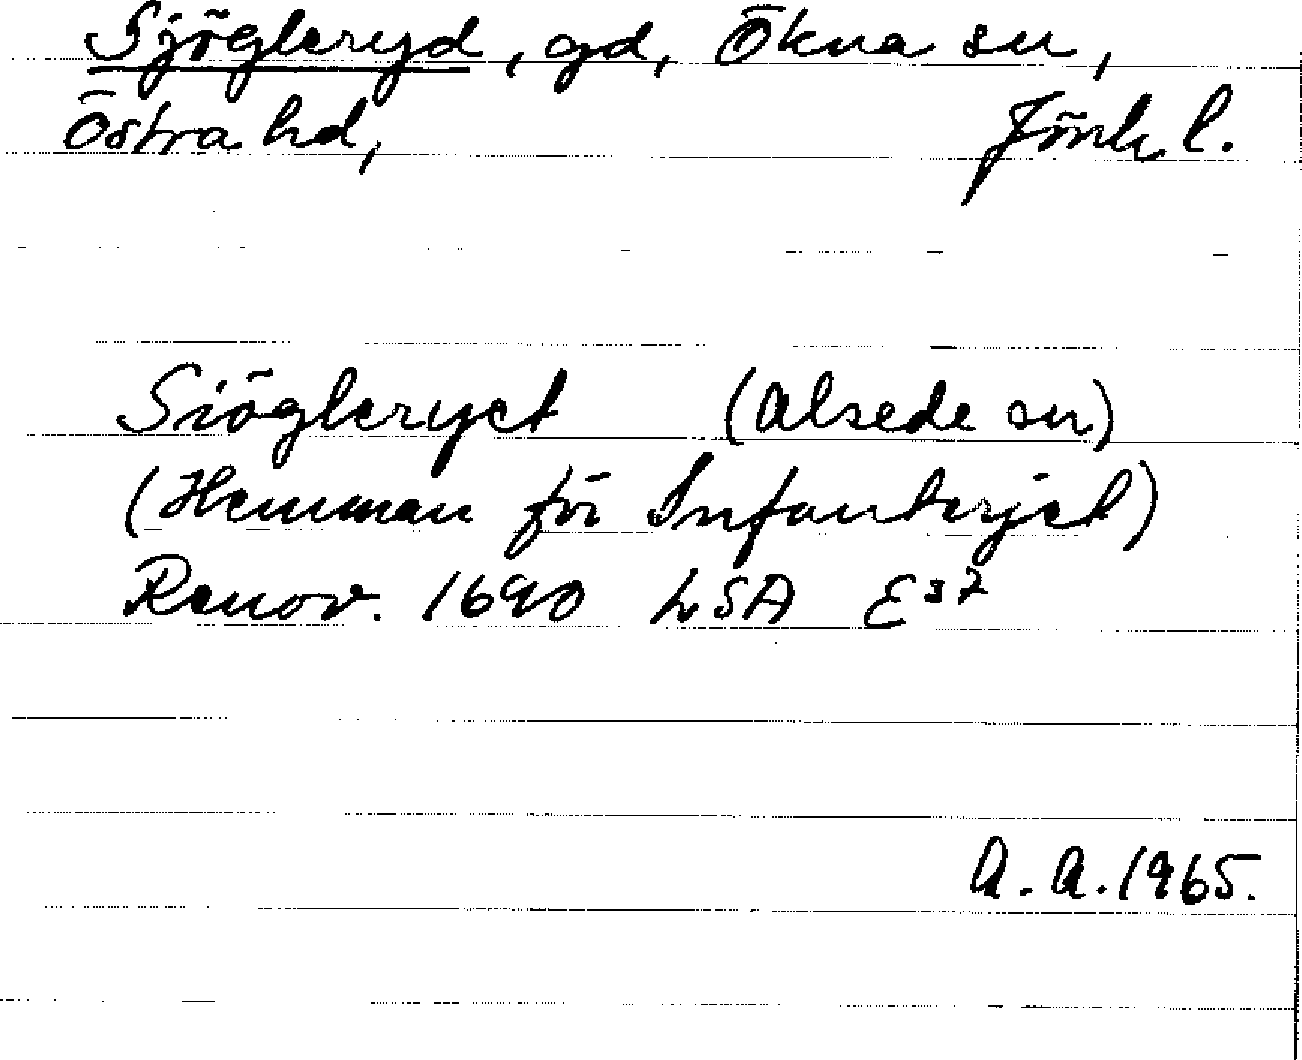 Sjögleryd, gd, Ökna sn,
Östra hd, Jönk l.
Siögleryet (Alsede sn)
(Hemman för Infanterjet)
Renov. 1690 LSA E37
A. A. 1965.